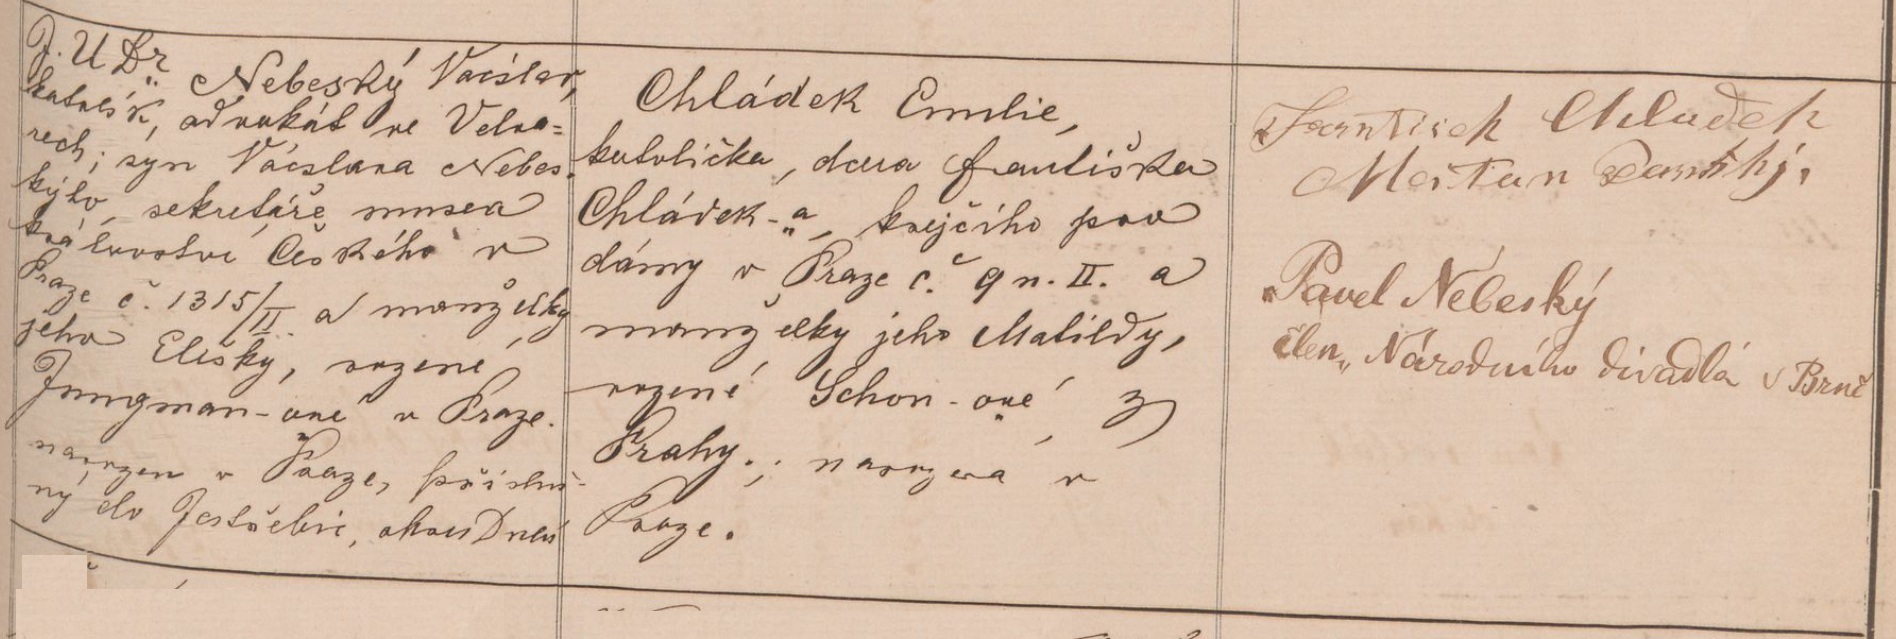 J. U Dr. Nebeský Vácslav,
katolík, advokát ve Velva=
rech; syn Vácslava Nebes-
kýho, sekretáře musea
království Českého v
Praze č. 1315/II. a manželky
jeho Elišky, rozené
Jungman-ové v Praze.
narozen v Praze, přísluš-
ný do Jestřebic, okres Dubá
Chládek Emilie,
katolička, dcera Františka
Chládek-a, krejčího pro
dámy v Praze č. 9 n. II. a
manželky jeho Matildy,
rozené Schon-ové, z
Prahy.; narozena v
Praze.
František Chládek
Pavel Nebeský
člen „Národního divadla v Brně